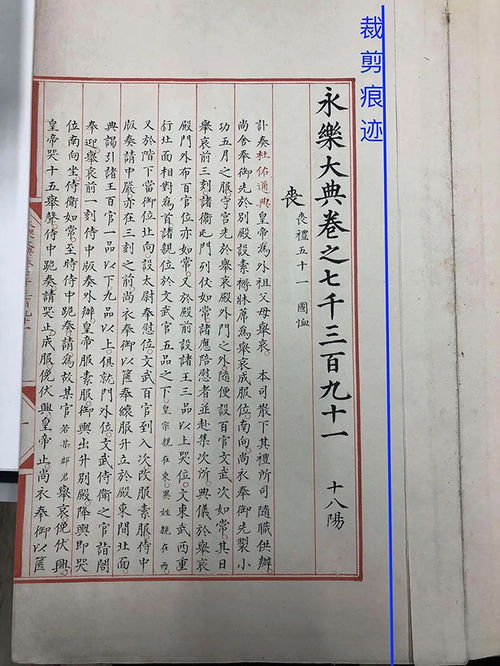 裁剪痕迹
永樂大典卷之七千三百九十一 十八陽
喪 喪禮五十一 國恤
訃奏杜佑通典皇帝為外祖父母舉哀。本司散下其禮所司隨職供辦。
尚舍奉御先於別殿設素褥牀席為舉哀成服位。南向尚衣奉御先製小
功五月之服。守宮先於舉哀殿外門之外隨便設百官文武次如常。其日
舉哀前三刻。諸衛屯門列仗如常。諸應陪慰者並赴集次所。典儀於舉哀
殿門外布百官位亦如常。又於殿前設諸王三品以上哭位。文東武西重
行北面相對為首。諸親位於文武官五品之下。皇宗親在東。異姓親在西。
又於階下當御位北向設太尉奉慰位。文武百官到入次改服素服。侍中
版奏請中嚴。亦在三刻之前。尚衣奉御以篋奉縗服升立於殿東間北面。
典謁引諸王百官一品以下九品以上。俱就門外位。文武侍衛之官詣閤
奉迎。舉哀前一刻。侍中版奏外辦。皇帝服素服。御輿出升別殿。降輿即哭
位南向坐。侍衛如常。至時侍中跪奏請為故某官若某郡君舉哀。俛伏興。
皇帝哭十五舉聲。侍中跪奏請哭止成服。俛伏興。皇帝止。尚衣奉御以篋